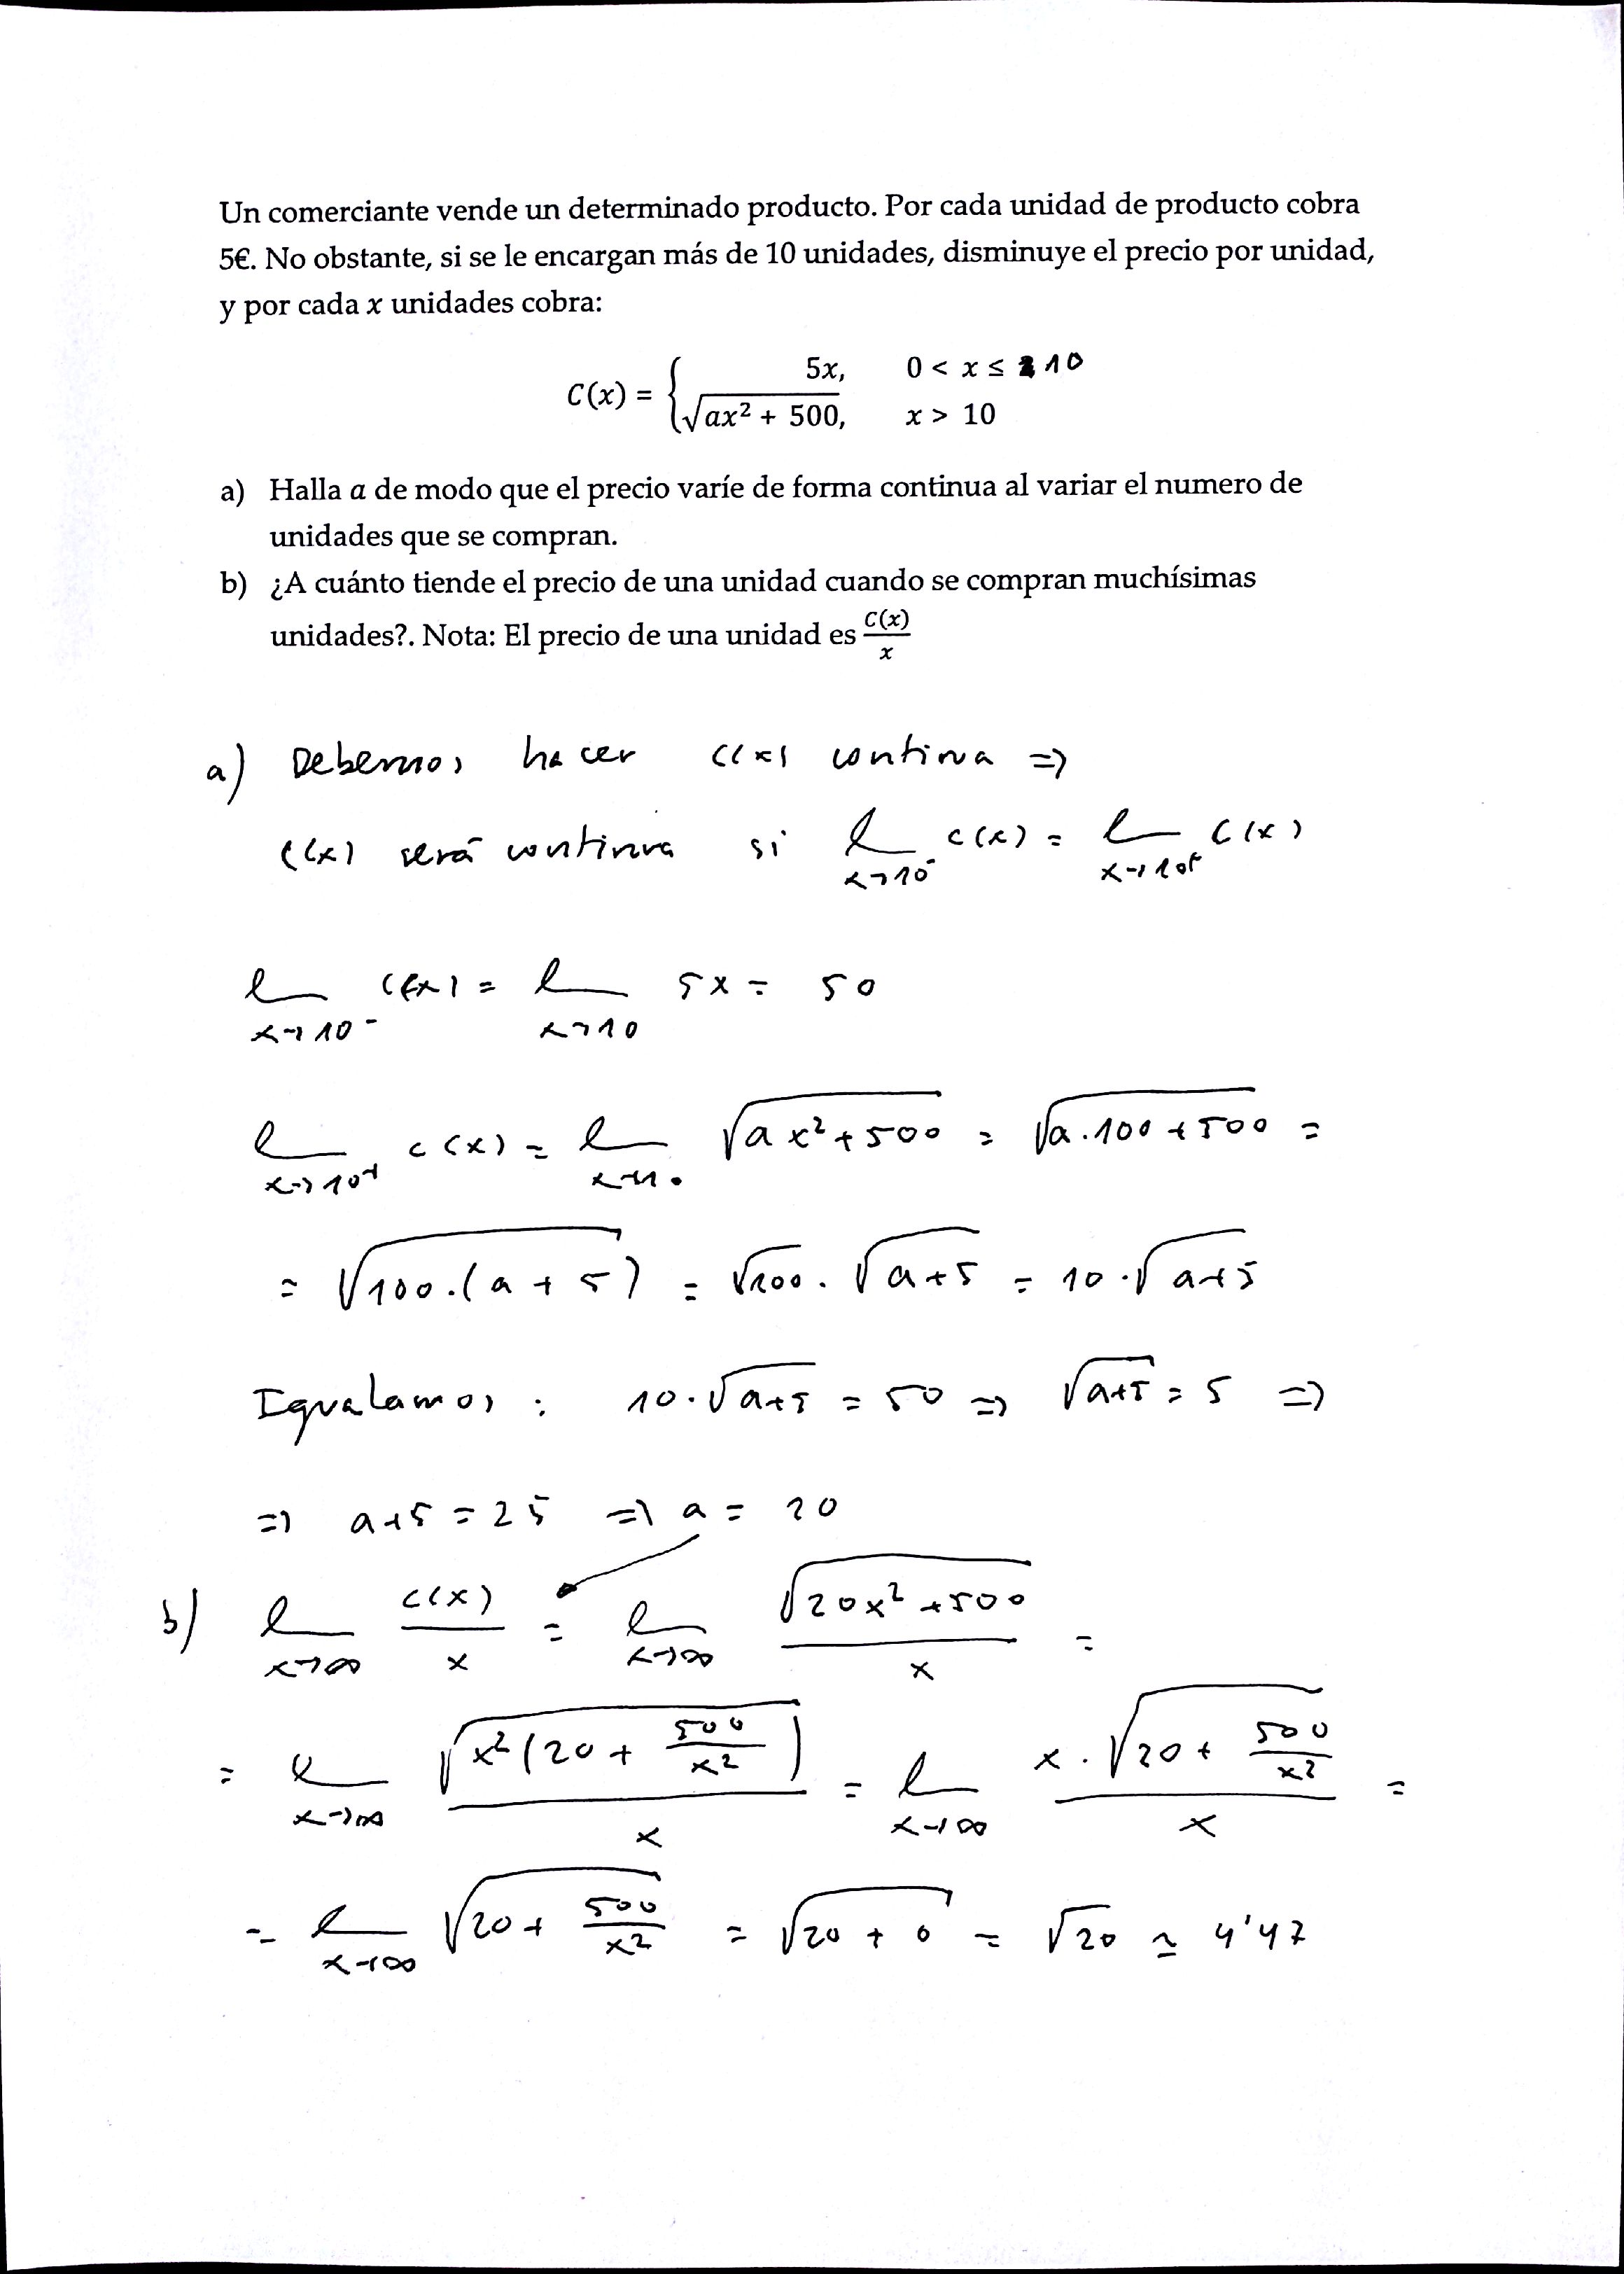 Un comerciante vende un determinado producto. Por cada unidad de producto cobra
5€. No obstante, si se le encargan más de 10 unidades, disminuye el precio por unidad,
y por cada x unidades cobra:
C(x) = { 5x, 0 < x ≤ 10
√(ax² + 500), x > 10
a) Halla a de modo que el precio varíe de forma continua al variar el numero de
unidades que se compran.
b) ¿A cuánto tiende el precio de una unidad cuando se compran muchísimas
unidades?. Nota: El precio de una unidad es C(x)/x
a) Debemos hacer C(x) continua =>
C(x) será continua si l x→10⁻ C(x) = l x→10⁺ C(x)
l x→10⁻ C(x) = l x→10 5x = 50
l x→10⁺ C(x) = l x→10 √(ax²+500) = √(a·100+500) =
= √(100·(a+5)) = √100 · √(a+5) = 10·√(a+5)
Igualamos : 10·√(a+5) = 50 => √(a+5) = 5 =>
=> a+5 = 25 => a = 20
b) l x→∞ C(x)/x = l x→∞ √(20x²+500)/x =
= l x→∞ √(x²(20+500/x²))/x = l x→∞ x·√(20+500/x²)/x =
= l x→∞ √(20+500/x²) = √(20+0) = √20 ≃ 4'47